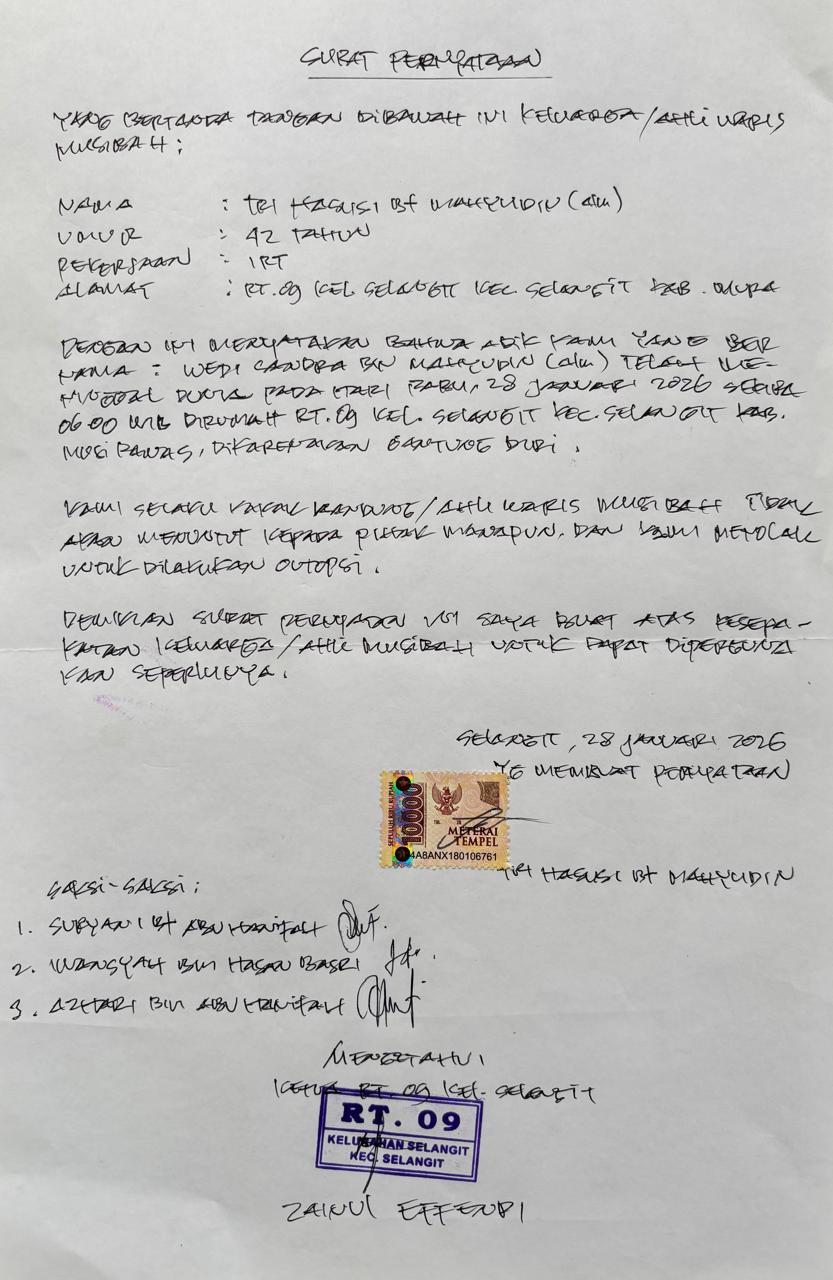 SURAT PERNYATAAN
YANG BERTANDA TANGAN DIBAWAH INI KELUARGA/AHLI WARIS
MUSIBAH :
NAMA : TRI HASUSI Bt MAHYUDIN (alm)
UMUR : 42 TAHUN
PEKERJAAN : IRT
ALAMAT : RT.09 KEL SELANGIT KEC. SELANGIT KAB. MURA
DENGAN INI MENYATAKAN BAHWA ADIK KAMI YANG BER
NAMA : WEDI CANDRA BIN MAHYUDIN (alm) TELAH ME-
NINGGAL DUNIA PADA HARI RABU, 28 JANUARI 2026
06.00 WIB DIRUMAH RT.09 KEL. SELANGIT KEC. SELANGIT KAB.
MUSI RAWAS, DIKARENAKAN GANTUNG DIRI.
KAMI SELAKU KAKAK KANDUNG/AHLI WARIS MUSIBAH TIDAK
AKAN MENUNTUT KEPADA PIHAK MANAPUN, DAN KAMI MENOLAK
UNTUK DILAKUKAN OUTOPSI.
DEMIKIAN SURAT PERNYAAN INI SAYA BUAT ATAS KESEPA-
KATAN KELUARGA/AHLI MUSIBAH UNTUK DAPAT DIPERGUNA
KAN SEPERLUNYA.
SELANGIT, 28 JANUARI 2026
YG MEMBUAT PERNYATAAN
SEPULUH RIBU RUPIAH
10000
TGL. 20
METERAI
TEMPEL
4A8ANX180106761
TRI HASUSI Bt MAHYUDIN
SAKSI-SAKSI :
1. SURYANI Bt ABU HANIFAH
2. IWANSYAH BIN HASAN BASRI
3. AZHARI BIN ABU HANIFAH
MENGETAHUI
KETUA RT. 09 KEL. SELANGIT
RT. 09
KELURAHAN SELANGIT
KEC. SELANGIT
ZAINUL EFFENDI